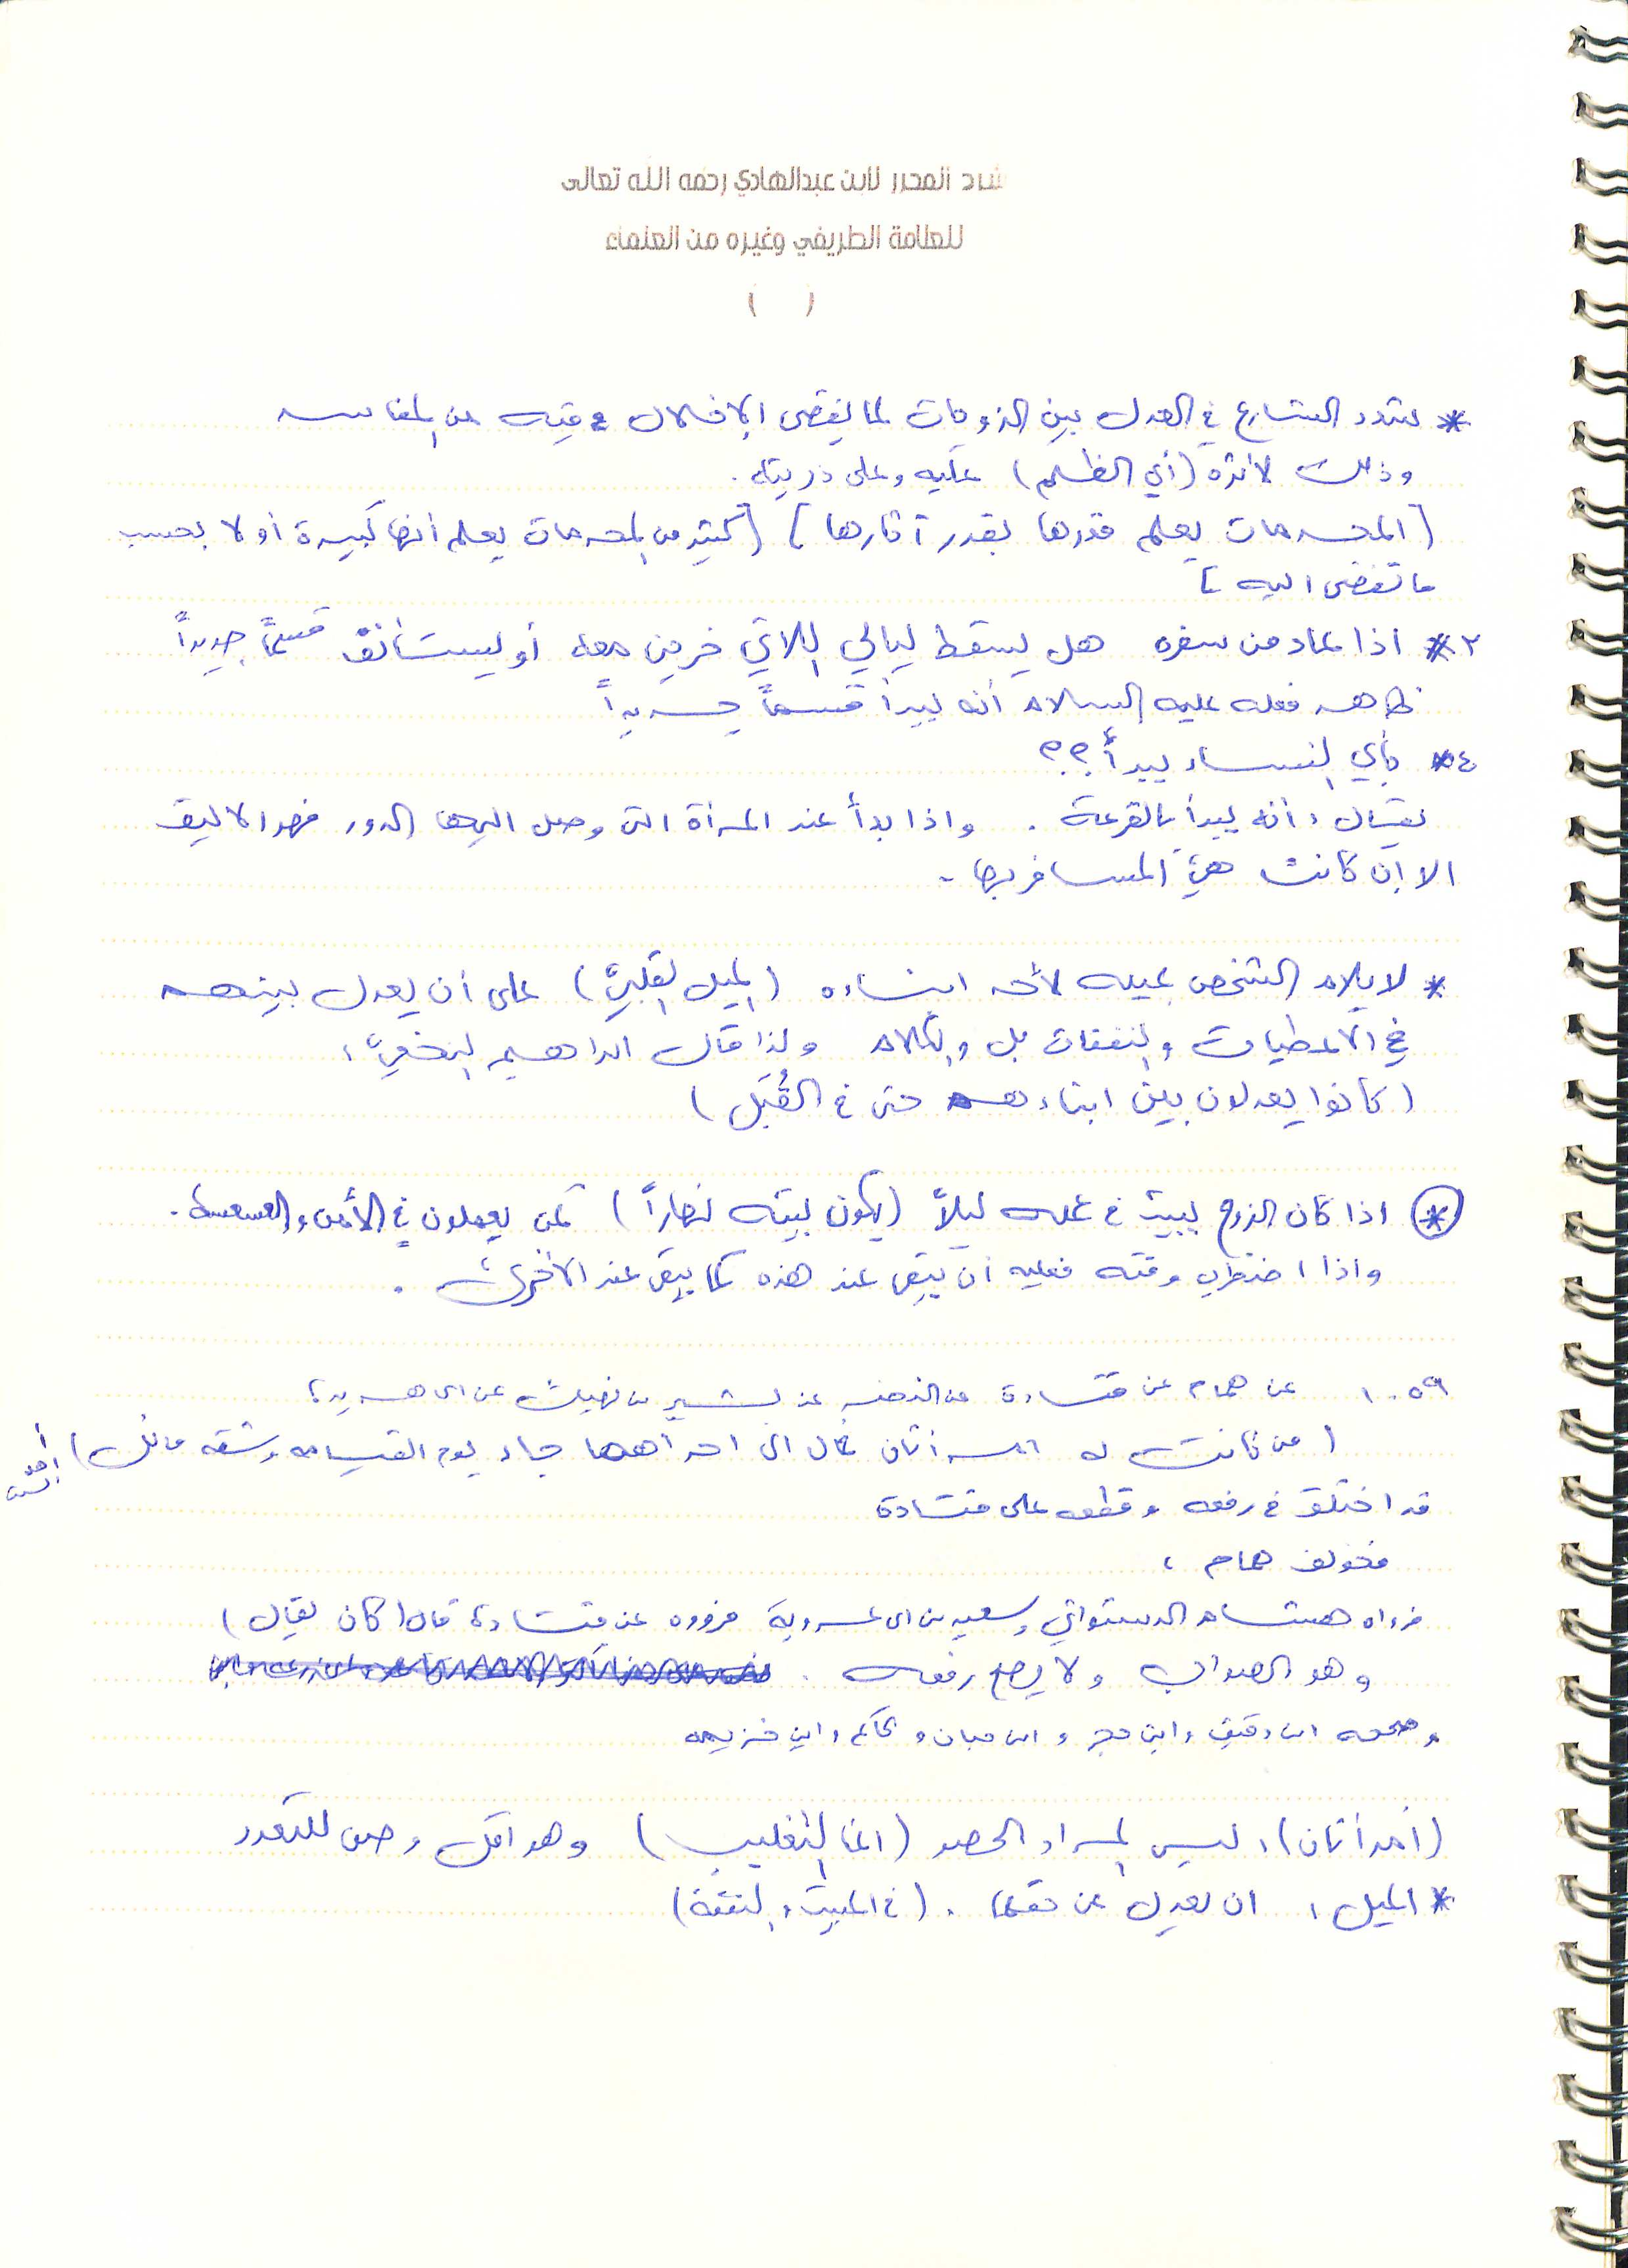 شرح المحرر لابن عبدالهادي رحمه الله تعالى
للعلامة الطريفي وغيره من العلماء
( )
* يشدد الشارع في العدل بين الزوجات لما يفضي الإخلال فيه من المفاسد
وذلك لأثره (أي الظلم) عليه وعلى ذريته.
[المحرمات يعلم قدرها بقدر آثارها] [كثير من المحرمات يعلم أنها كبيرة أو لا بحسب
ما تفضي اليه]
٣* اذا عاد من سفره هل يسقط ليالي اللاتي خرجن معه أو يستأنف قسماً جديداً
ظاهر فعله عليه السلام أنه يبدأ قسماً جديداً
٤* بأي النساء يبدأ؟؟
يقال: أنه يبدأ بالقرعة. واذا بدأ عند المرأة التي وصل اليها الدور فهو الاليق
الا إن كانت هي المسافر بها.
* لا يلام الشخص بميله لأحد ابناءه (الميل القلبي) على أن يعدل بينهم
في الأعطيات والنفقات بل والكلام ولذا قال ابراهيم النخعي:
(كانوا يعدلون بين ابناءهم حتى في القُبَل)
* اذا كان الزوج يبيت في عمله ليلاً (يكون بيته نهاراً) كمن يعملون في الأمن والعسعسة.
واذا اضطرب وقته فعليه ان يبقى عند هذه كما يبقى عند الأخرى.
١٠٥٩ عن همام عن قتادة عن النضر عن بشير بن نهيك عن ابي هريرة:
(من كانت له امرأتان فمال الى احداهما جاء يوم القيامة وشقه مائل)
قد اختلف في رفعه وقطعه على قتادة
فخولف همام:
فرواه هشام الدستوائي وسعيد بن ابي عروبة فرووه عن قتادة قال (كان يقال)
وهو الصواب ولا يصح رفعه.
وصححه ابن دقيق وابن حجر وابن حبان والحاكم وابن خزيمه
(أمرأتان): ليس المراد الحصر (انما التغليب) وهو اقل وصف للتعدد
* الميل: ان يعدل عن حقها. (في المبيت والنفقة)